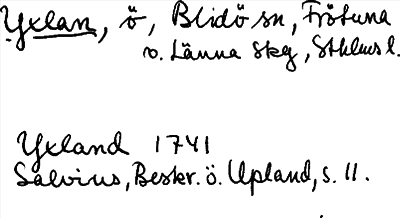 Yxlan, ö, Blidö sn, Frötuna
o. Länna skg, Sthlms l.
Yxland 1741
Salvius, Beskr. ö. Upland, s. 11.